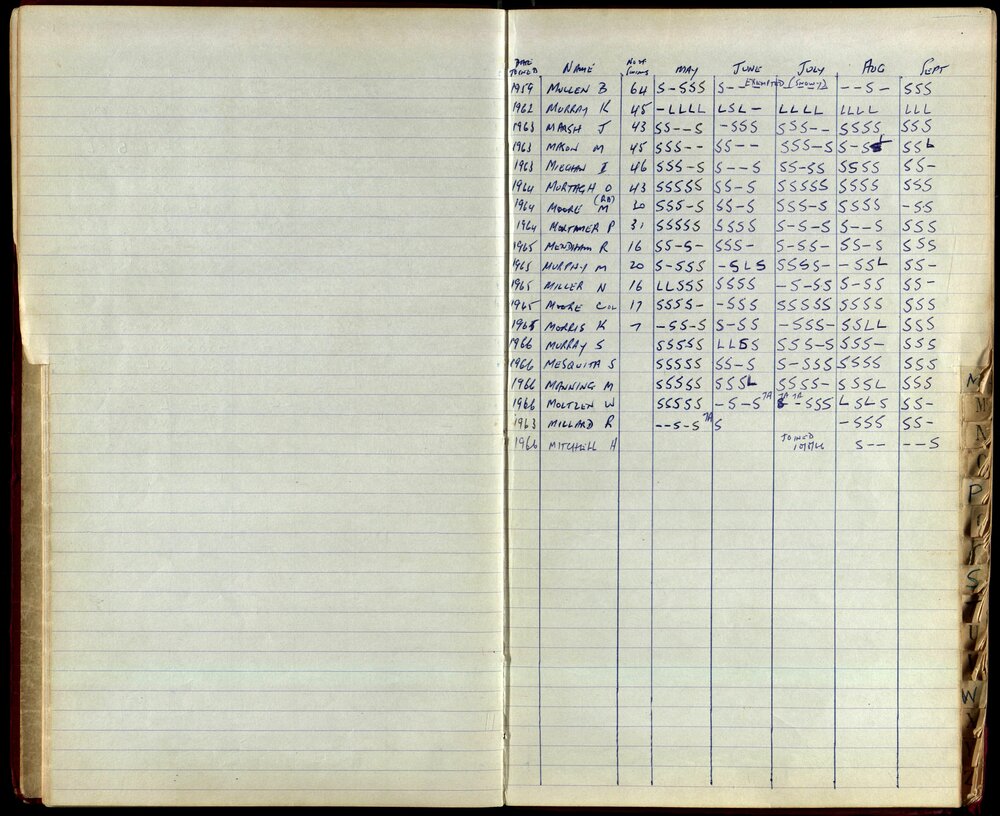 DATE JOINED NAME NO OF SWIMS MAY JUNE JULY AUG SEPT
1959 MULLEN B 64 S-SSS S-- EXEMPTED (SNOWY) --S- SSS
1962 MURRAY K 45 -LLLL LSL- LLLL LLLL LLL
1963 MARSH J 43 SS--S -SSS SSS-- SSSS SSS
1963 MASON M 45 SSS-- SS-- SSS-S S-S SSL
1963 MIEGHAN I 46 SSS-S S--S SS-SS SSSS SS-
1964 MURTAGH O 43 SSSSS SS-S SSSSS SSSS SSS
1964 MOORE (RD) M 30 SSS-S SS-S SSS-S SSSS -SS
1964 MORTIMER P 31 SSSSS SSSS S-S-S S--S SSS
1965 MENDHAM R 16 SS-S- SSS- S-SS- SS-S SSS
1965 MURPHY M 20 S-SSS -SLS SSSS- -SSL SS-
1965 MILLER N 16 LLSSS SSSS -S-SS S-SS SS-
1965 MOORE COL 17 SSSS- -SSS SSSSS SSSS SSS
1965 MORRIS K 7 -SS-S S-SS -SSS- SSLL SSS
1966 MURRAY S SSSSS LLSS SSS-S SSS- SSS
1966 MESQUITA S SSSSS SS-S S-SSS SSSS SSS
1966 MANNING M SSSSS SSSL SSSS- SSSL SSS
1966 MOLTZEN W SSSSS -S-S TA TA TA -SSS LSLS SS-
1963 MILLARD R --S-S TA S -SSS SS-
1966 MITCHELL H JOINED S-- --S
M
M
N
P
S
U
W